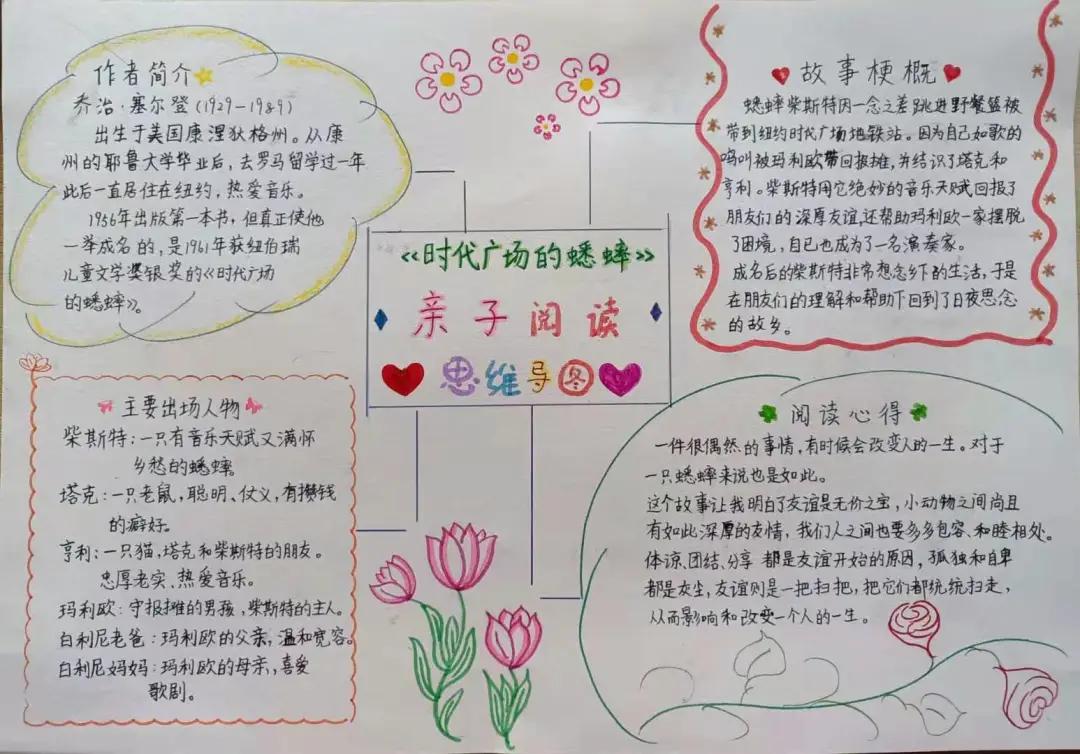 作者简介
乔治·塞尔登(1929-1989)
出生于美国康涅狄格州。从康
州的耶鲁大学毕业后,去罗马留学过一年
此后一直居住在纽约,热爱音乐。
1956年出版第一本书,但真正使他
一举成名的,是1961年获纽伯瑞
儿童文学奖银奖的《时代广场
的蟋蟀》。
故事梗概
蟋蟀柴斯特因一念之差跳进野餐篮被
带到纽约时代广场地铁站。因为自己如歌的
鸣叫被玛利欧带回报摊,并结识了塔克和
亨利。柴斯特用它绝妙的音乐天赋回报了
朋友们的深厚友谊,还帮助玛利欧一家摆脱
了困境,自己也成为了一名演奏家。
成名后的柴斯特非常想念乡下的生活,于是
在朋友们的理解和帮助下回到了日夜思念
的故乡。
《时代广场的蟋蟀》
亲子阅读
思维导图
主要出场人物
柴斯特:一只有音乐天赋又满怀
乡愁的蟋蟀
塔克:一只老鼠,聪明、仗义,有攒钱
的癖好。
亨利:一只猫,塔克和柴斯特的朋友。
忠厚老实、热爱音乐。
玛利欧:守报摊的男孩,柴斯特的主人。
白利尼老爸:玛利欧的父亲,温和宽容。
白利尼妈妈:玛利欧的母亲,喜爱
歌剧。
阅读心得
一件很偶然的事情,有时候会改变人的一生。对于
一只蟋蟀来说也是如此。
这个故事让我明白了友谊是无价之宝,小动物之间尚且
有如此深厚的友情,我们人之间也要多多包容、和睦相处。
体谅、团结、分享 都是友谊开始的原因,孤独和自卑
都是灰尘,友谊则是一把扫把,把它们都统统扫走,
从而影响和改变一个人的一生。